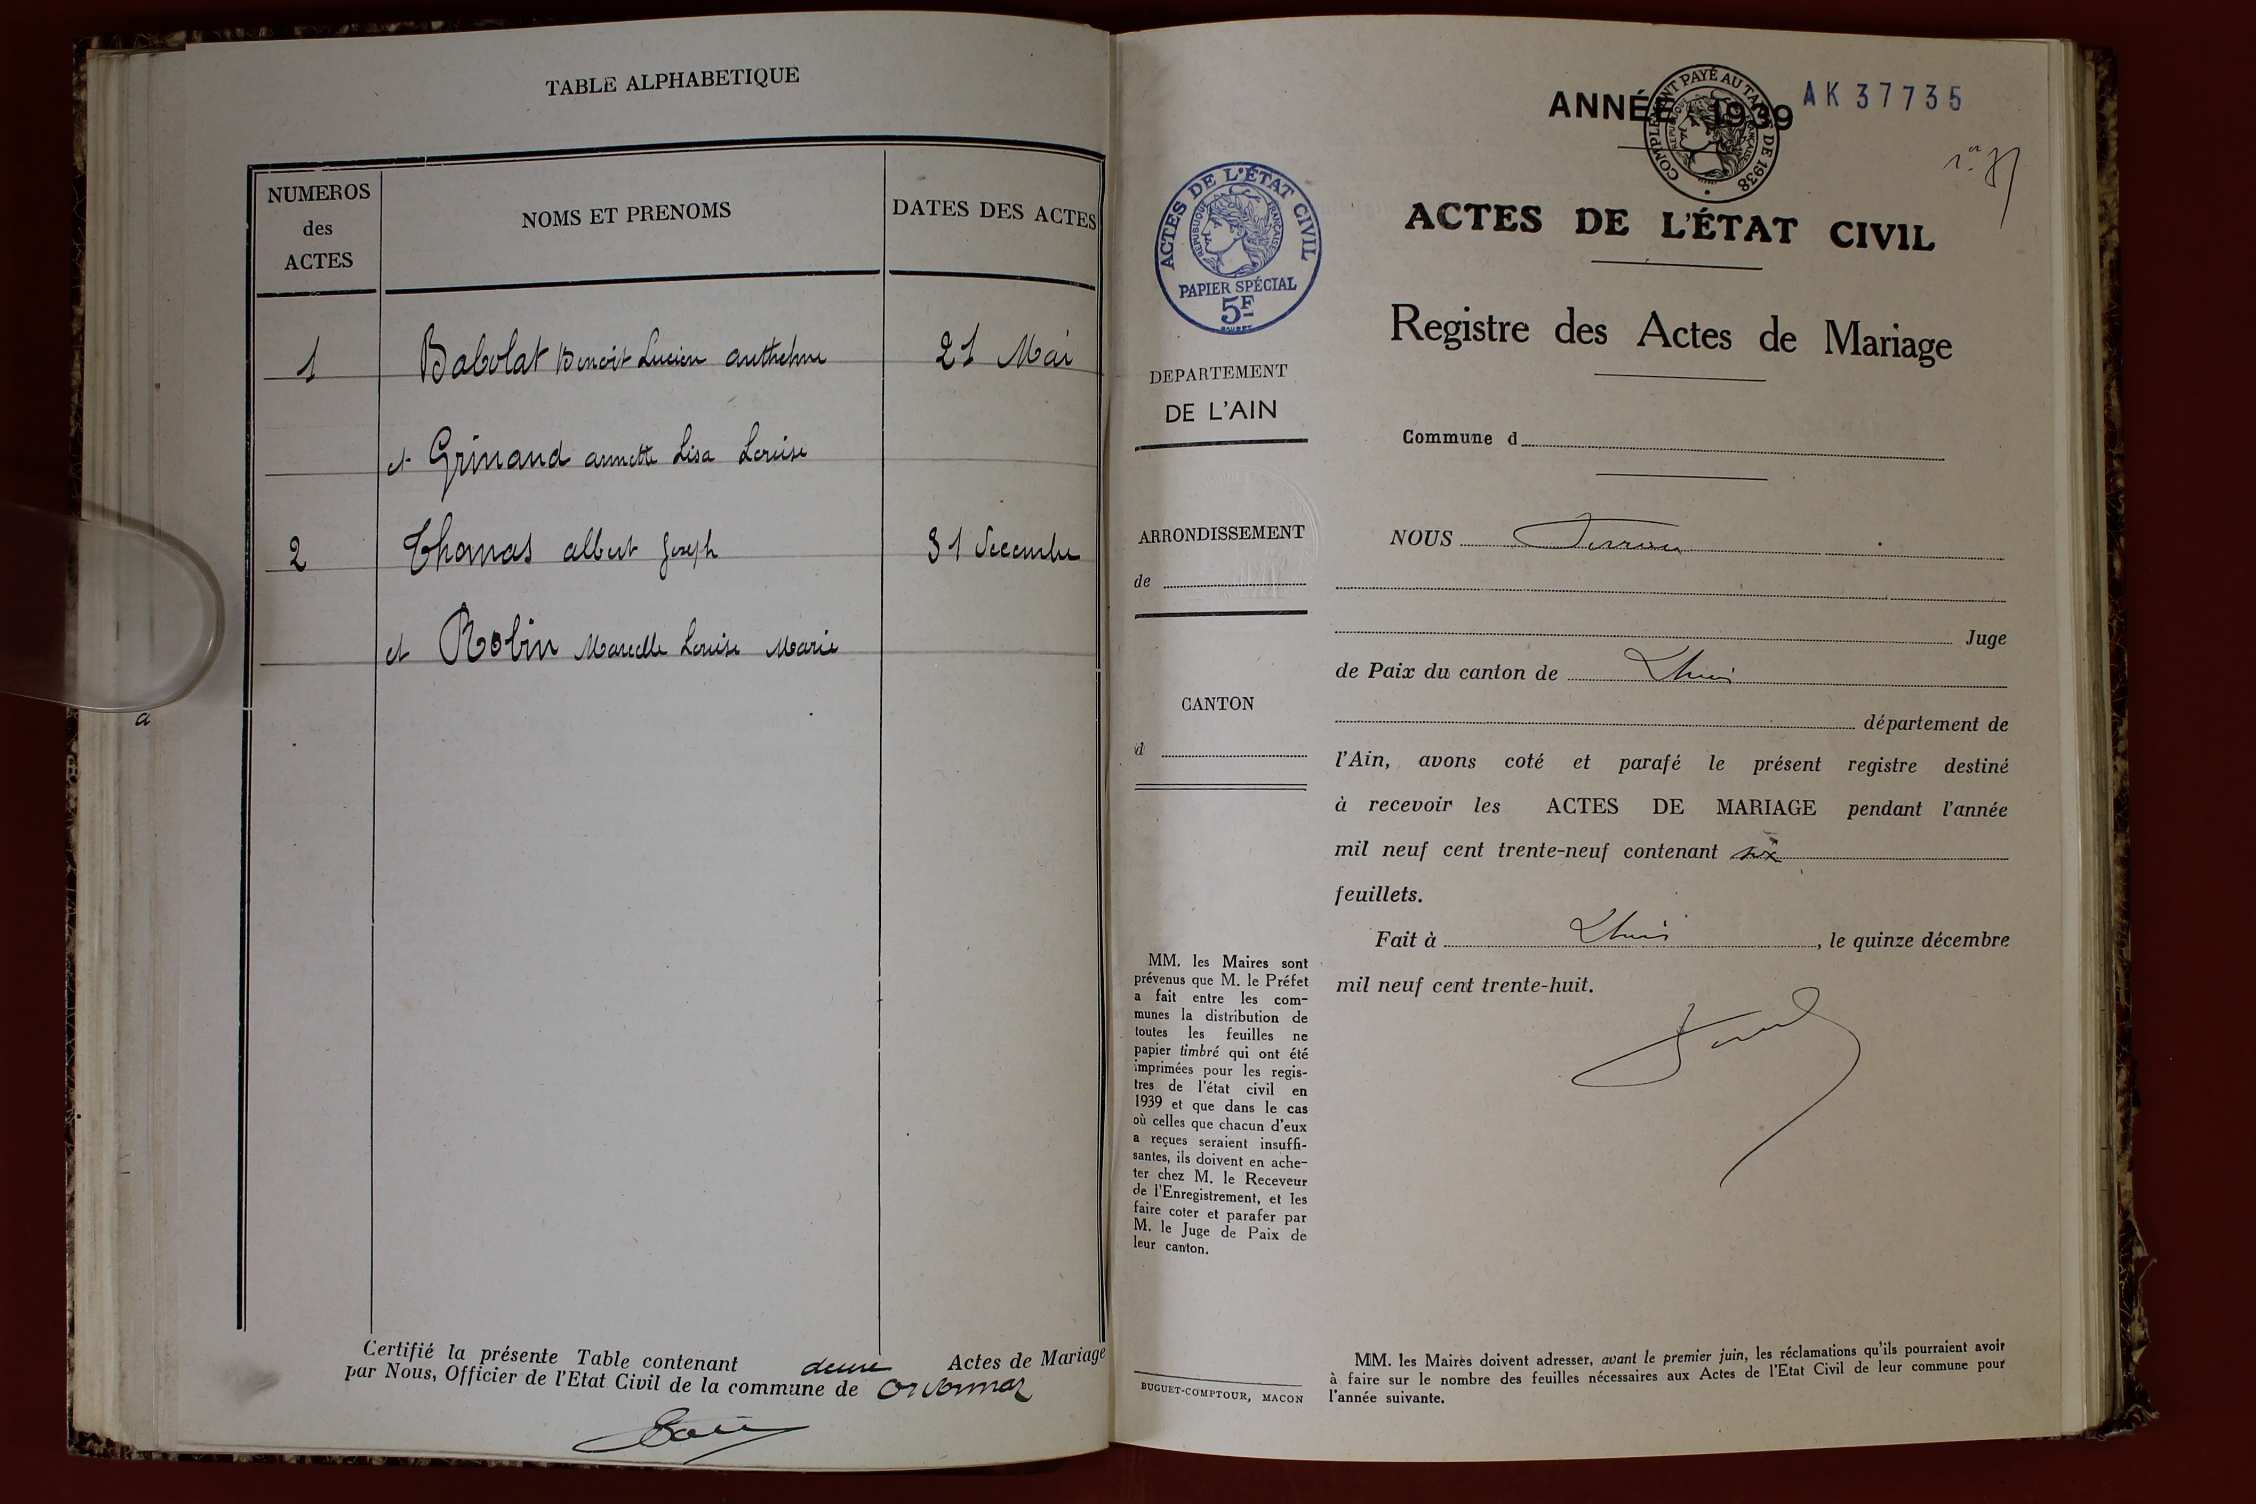 TABLE ALPHABETIQUE
NUMEROS
des
ACTES
NOMS ET PRENOMS
DATES DES ACTES
1
Babolat Benoit Lucien Anthelme
21 Mai
et Grinand annette Lisa Louise
2
Thomas albert Joseph
31 Decembre
et Robin Marcelle Louise Marie
Certifié la présente Table contenant deux Actes de Mariage
par Nous, Officier de l'Etat Civil de la commune de Ordonnaz
ANNÉE 1939
AK 37735
COMPLEMENT PAYÉ AU TARIF DE 1938
REPUBLIQUE FRANÇAISE
ACTES DE L'ÉTAT CIVIL
REPUBLIQUE FRANÇAISE
PAPIER SPÉCIAL
5F
ACTES DE L'ÉTAT CIVIL
Registre des Actes de Mariage
DEPARTEMENT
DE L'AIN
Commune d
ARRONDISSEMENT
de
CANTON
d
NOUS
Juge
de Paix du canton de Lhuis
département de
l'Ain, avons coté et parafé le présent registre destiné
à recevoir les ACTES DE MARIAGE pendant l'année
mil neuf cent trente-neuf contenant six
feuillets.
Fait à Lhuis, le quinze décembre
mil neuf cent trente-huit.
MM. les Maires sont
prévenus que M. le Préfet
a fait entre les com-
munes la distribution de
toutes les feuilles ne
papier timbré qui ont été
imprimées pour les regis-
tres de l'état civil en
1939 et que dans le cas
où celles que chacun d'eux
a reçues seraient insuffi-
santes, ils doivent en ache-
ter chez M. le Receveur
de l'Enregistrement, et les
faire coter et parafer par
M. le Juge de Paix de
leur canton.
BUGUET-COMPTOUR, MACON
MM. les Maires doivent adresser, avant le premier juin, les réclamations qu'ils pourraient avoir
à faire sur le nombre des feuilles nécessaires aux Actes de l'Etat Civil de leur commune pour
l'année suivante.